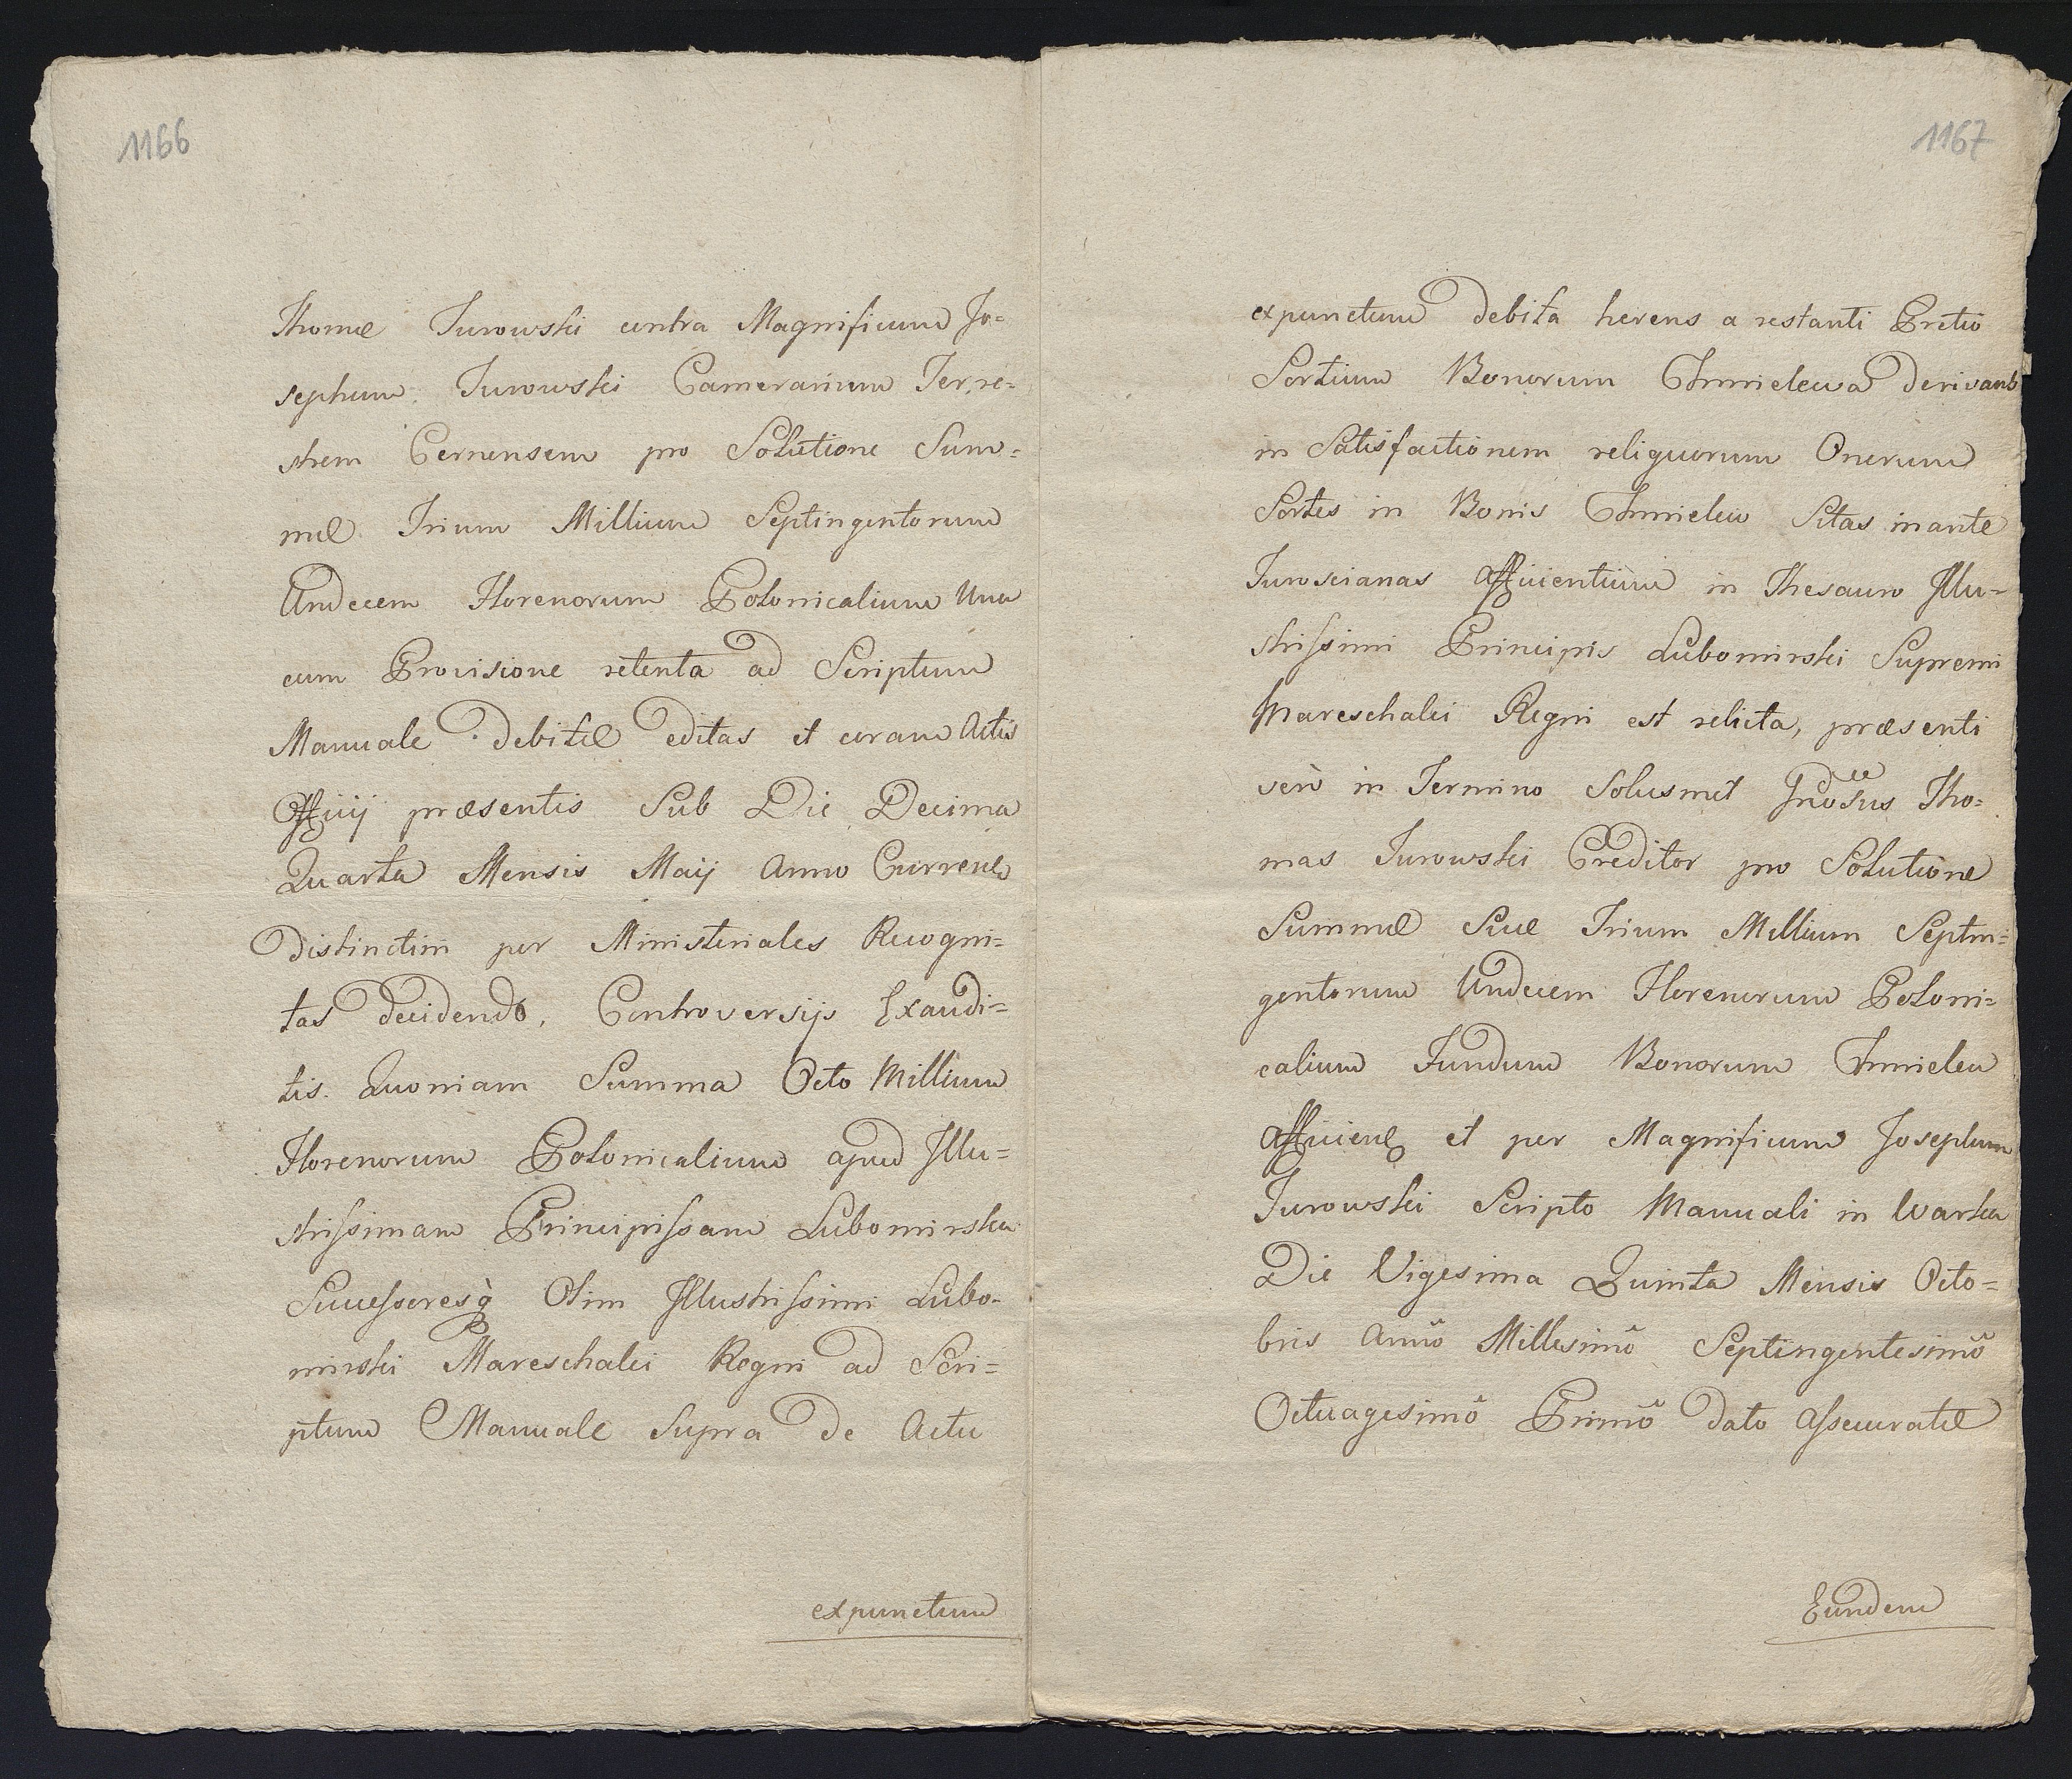 1166
Thomæ Jurowski contra Magnificum Jo=
sephum Jurowski Camerarium Terre=
strem Cernensem pro Solutione Sum=
mæ Trium Millium Septingentorum
Undecem Florenorum Polonicalium Una
cum Provisione retenta ad Scriptum
Manuale debitæ editas et coram Actis
Officij præsentis Sub Die Decima
Quarta Mensis Maij Anno Curren̄
Distinctim per Ministeriales Recogni=
tas decidendo, Controversijs Exaudi=
tis. Quoniam Summa Octo Millium
Florenorum Polonicalium apud Illu=
strissimam Principissam Lubomirska
Successoresq̀ Olim Illustrissimi Lubo-
mirski Mareschalci Regni ad Scri=
ptum Manuale Supra de Actu
expunctum
1167
expunctum debita herens a restanti Pretio
Sortium Bonorum Chmielewa derivans
in Satisfactionem reliquorum Onerum
Sortes in Bonis Chmielew Sitas inante
Juroscianas afficientium in Thesauro Illu-
strissimi Principis Lubomirski Supremi
Mareschalci Regni est relicta, præsenti
verò in Termino Solusmet Gnosus Tho=
mas Jurowski Creditor pro Solutione
Summæ Suæ Trium Millium Septin=
gentorum Undecem Florenorum Poloni=
calium Fundum Bonorum Chmielew
afficien̄ et per Magnificum Josephum
Jurowski Scripto Manuali in Warka
Die Vigesima Quinta Mensis Octo=
bris Annõ Millesimõ Septingentesimõ
Octuagesimõ Primõ dato assecuratæ
Eundem